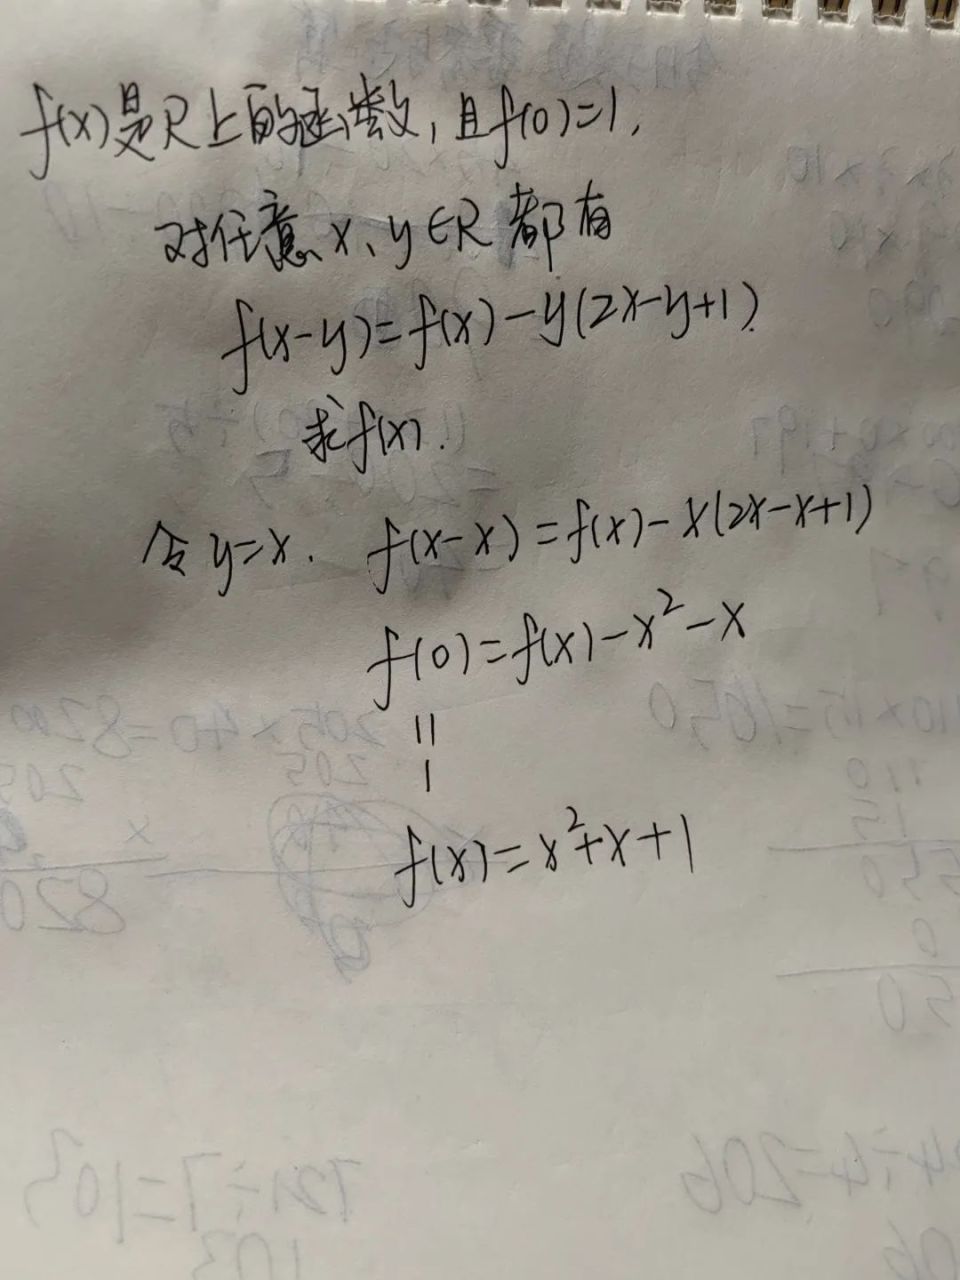 f(x)是R上的函数,且f(0)=1,
对任意x、y∈R都有
f(x-y)=f(x)-y(2x-y+1).
求f(x).
令y=x. f(x-x)=f(x)-x(2x-x+1)
f(0)=f(x)-x²-x
||
1
f(x)=x²+x+1